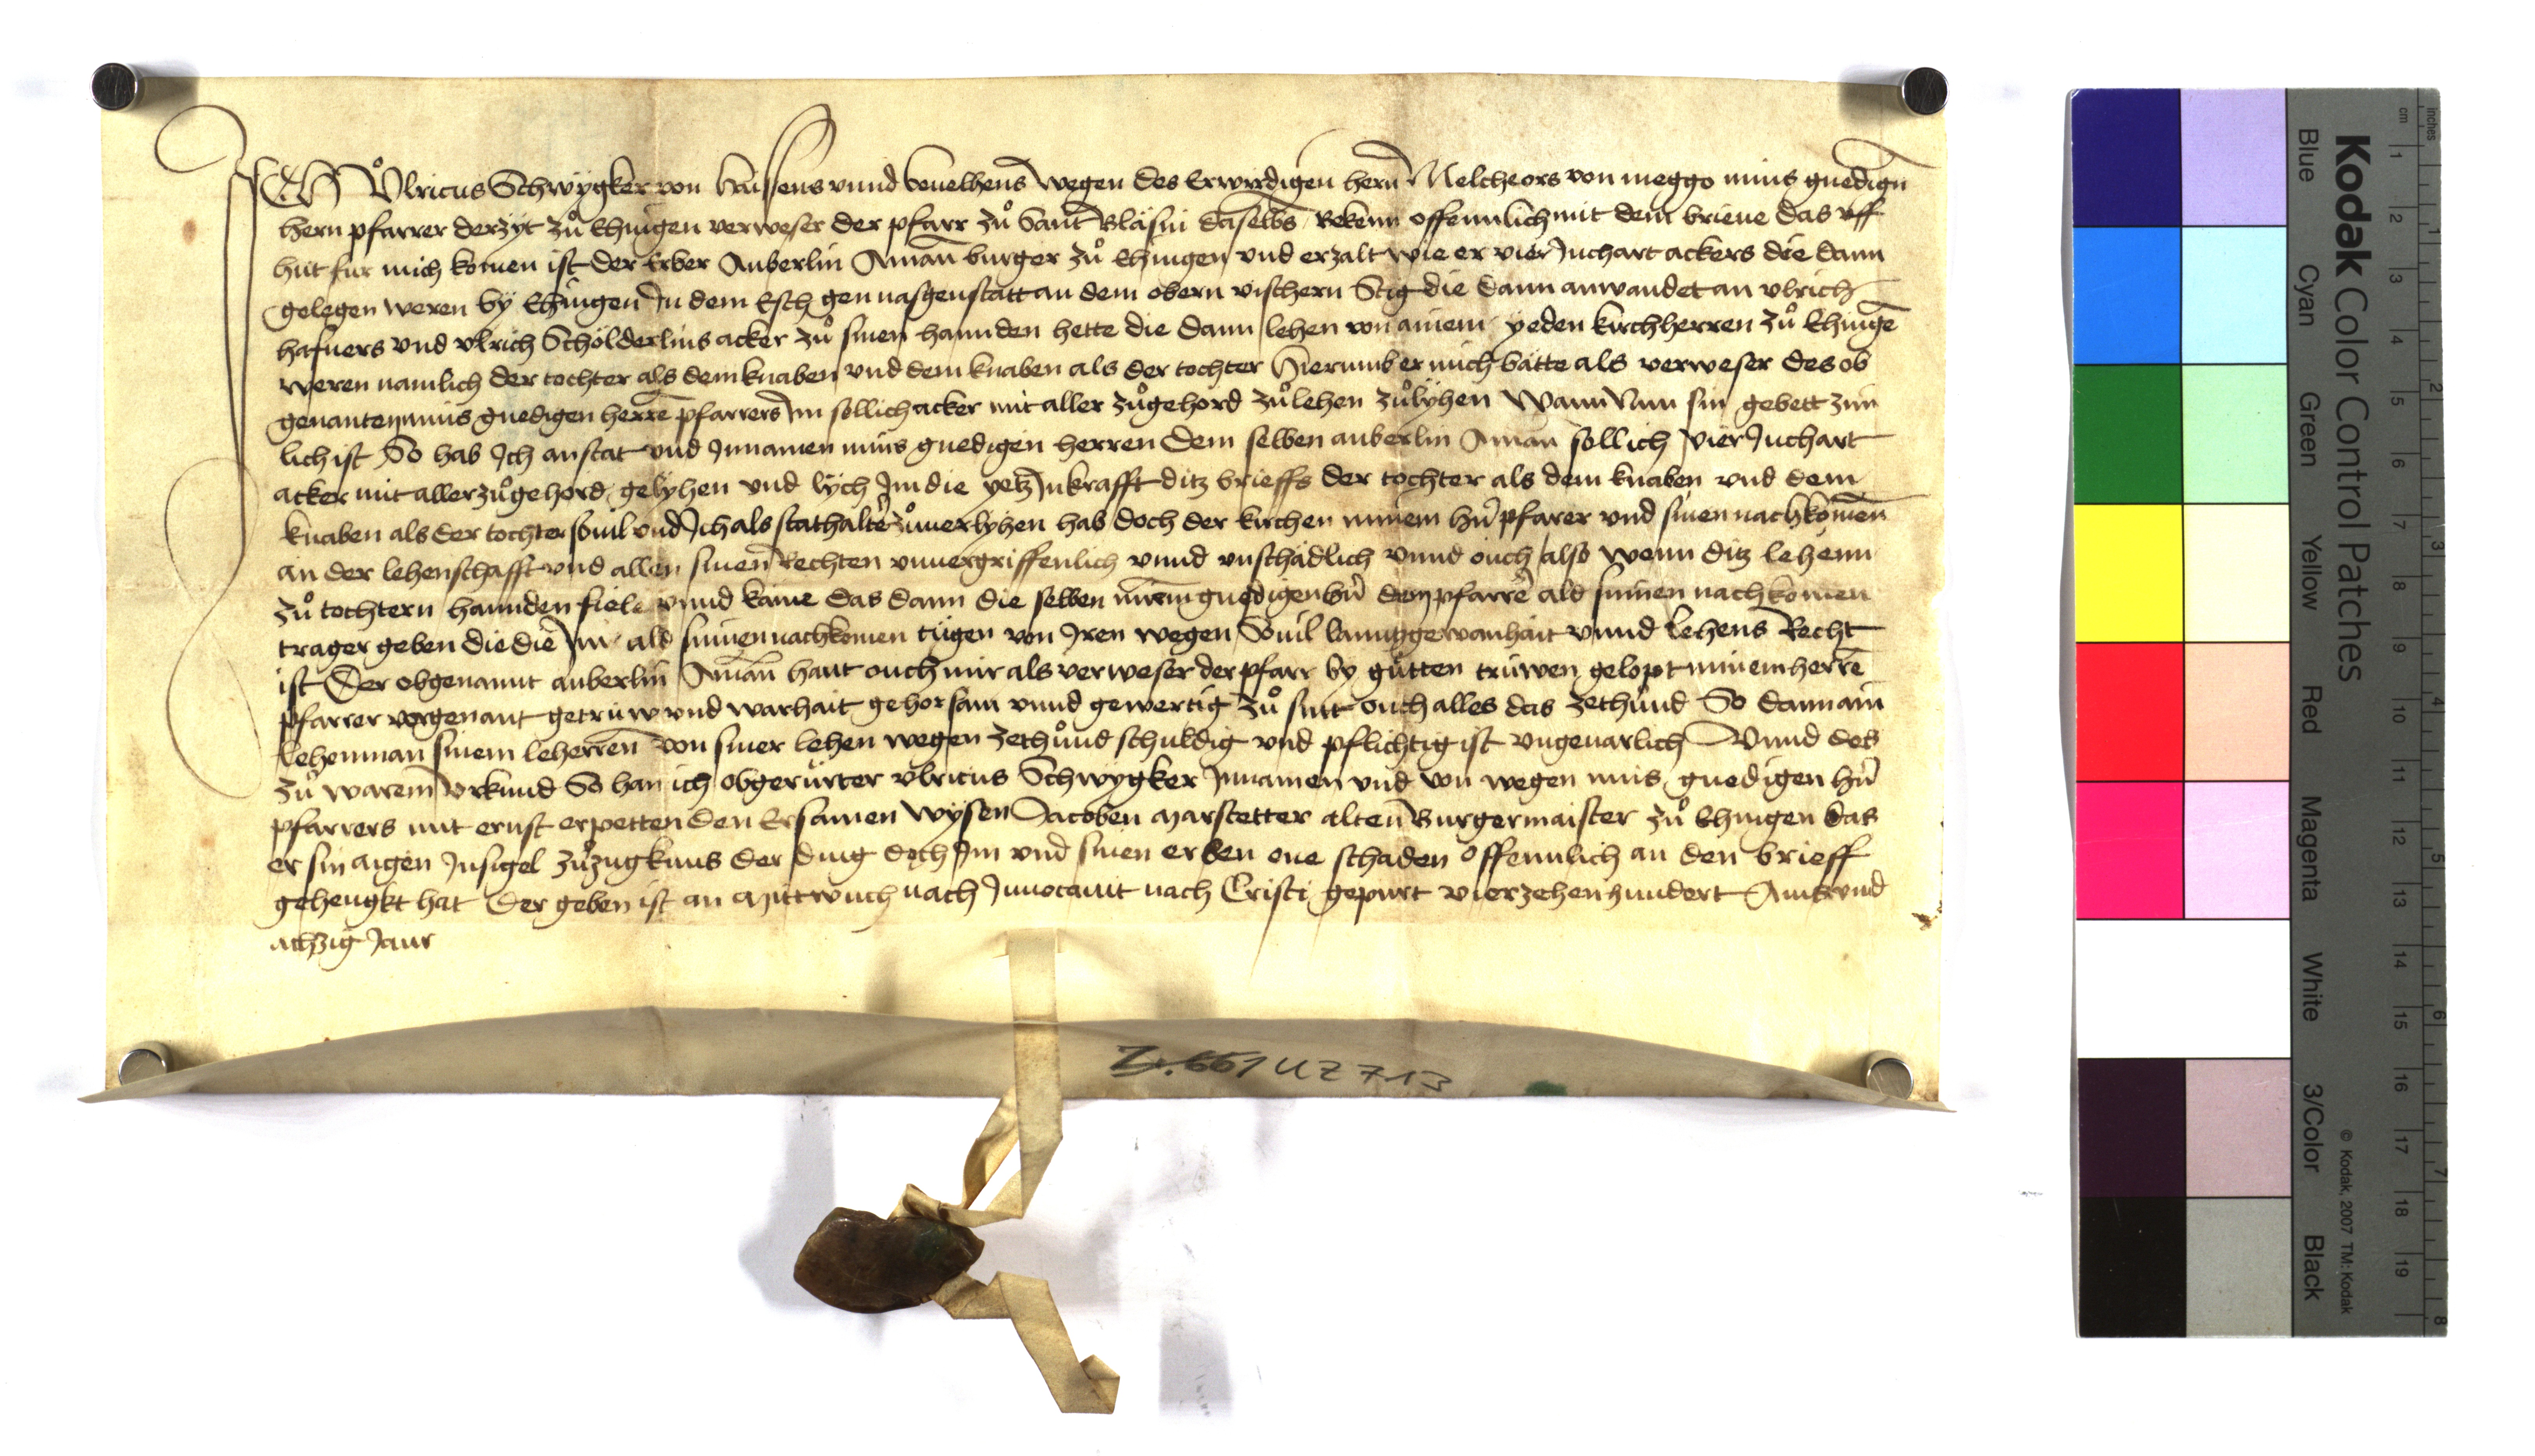 ICH Ůlricus Schwÿgker von haissens vnnd beuelhens wegen des Erwirdigen hern Melcheors von meggo mins gnedign
hern pfarrer derzÿt zů Ehingen verweser der pfarr zů Sant Bläsin daselbs Bekenn offennlich mit dem brieue das vff
hüt für mich komen ist der Erber Auberlin Aman burger zů Ehingen vnd erzalt wie er vier Juchart ackers die dann
gelegen weren bÿ Ehingen In dem Esch gen nasgenstatt an dem obern vischern Stig die dann anwandet an vlrich
hafners vnd vlrich Schölderlins acker zů sinen hannden hette die dann lehen von ainem yeden kirchherren zů Ehinge
weren namlich der tochter als dem knaben vnd dem knaben als der tochter Hierumb er mich bätte als verweser des ob
genanten mins gnedigen herre pfarrers Im sollich acker mit aller zůgehord zůlehen zůlÿhen Wann Nun sin gebett zim
lich ist So hab Ich anstat vnd Innamen mins gnedigen herren dem selben auberlin Aman sollich vier Juchart
acker mit aller zůgehord gelÿhen vnd lÿch Im die yetz Inkrafft ditz brieffs der tochter als dem knaben vnd dem
knaben als der tochter souil vnd Ich als stathalter zůuerlyhen hab doch der kirchen minem hn pfarer vnd sinen nachkomen
an der lehenschafft vnd allen sinen Rechten vnuergriffenlich vnnd vnschädlich vnnd ouch also wenn ditz lehenn
zů tochtern hannden fiele vnnd käme das dann die selben minem gnedigen hn dem pfarre ald sinen nachkomen
trager geben die die Im ald sinen nachkomen tügen von Iren wegen Souil lanntzgewanhait vnnd Lehens Recht
ist Der obgenannt auberlin Aman haut ouch mir als verweser der pfarr by gůtten trüwen gelopt minem herre
pfarrer vorgenant getrüw vnd warhait gehorsam vnnd gewertig zů sint ouch alles das zethůnd So dann ain
Lehenman sinem leherren von siner lehen wegen zethůnd schuldig vnd pflichtig ist vngeuarlich Vnnd des
zů warem Vrkund So han ich obgerürter vlricus Schwÿgker Innamen vnd von wegen mins gnedigen hn
pfarrers mit ernst erpetten den Ersamen wÿsen Jacoben marstetter alten Burgermaister zů Ehingen das
er sin aigen Insigel zůzugknus der ding doch Im vnd sinen erben one schaden offennlich an den brieff
gehengkt hat Der geben ist an Mittwuch nach Inuocauit nach Cristi gepurt vierzehenhundert vnd
achzig Jaur
Z. 661 U Z 713
Kodak Color Control Patches
Blue Cyan Green Yellow Red Magenta White 3/Color Black
© Kodak, 2007 TM: Kodak
cm 1 2 3 4 5 6 7 8 9 10 11 12 13 14 15 16 17 18 19
inches 1 2 3 4 5 6 7 8